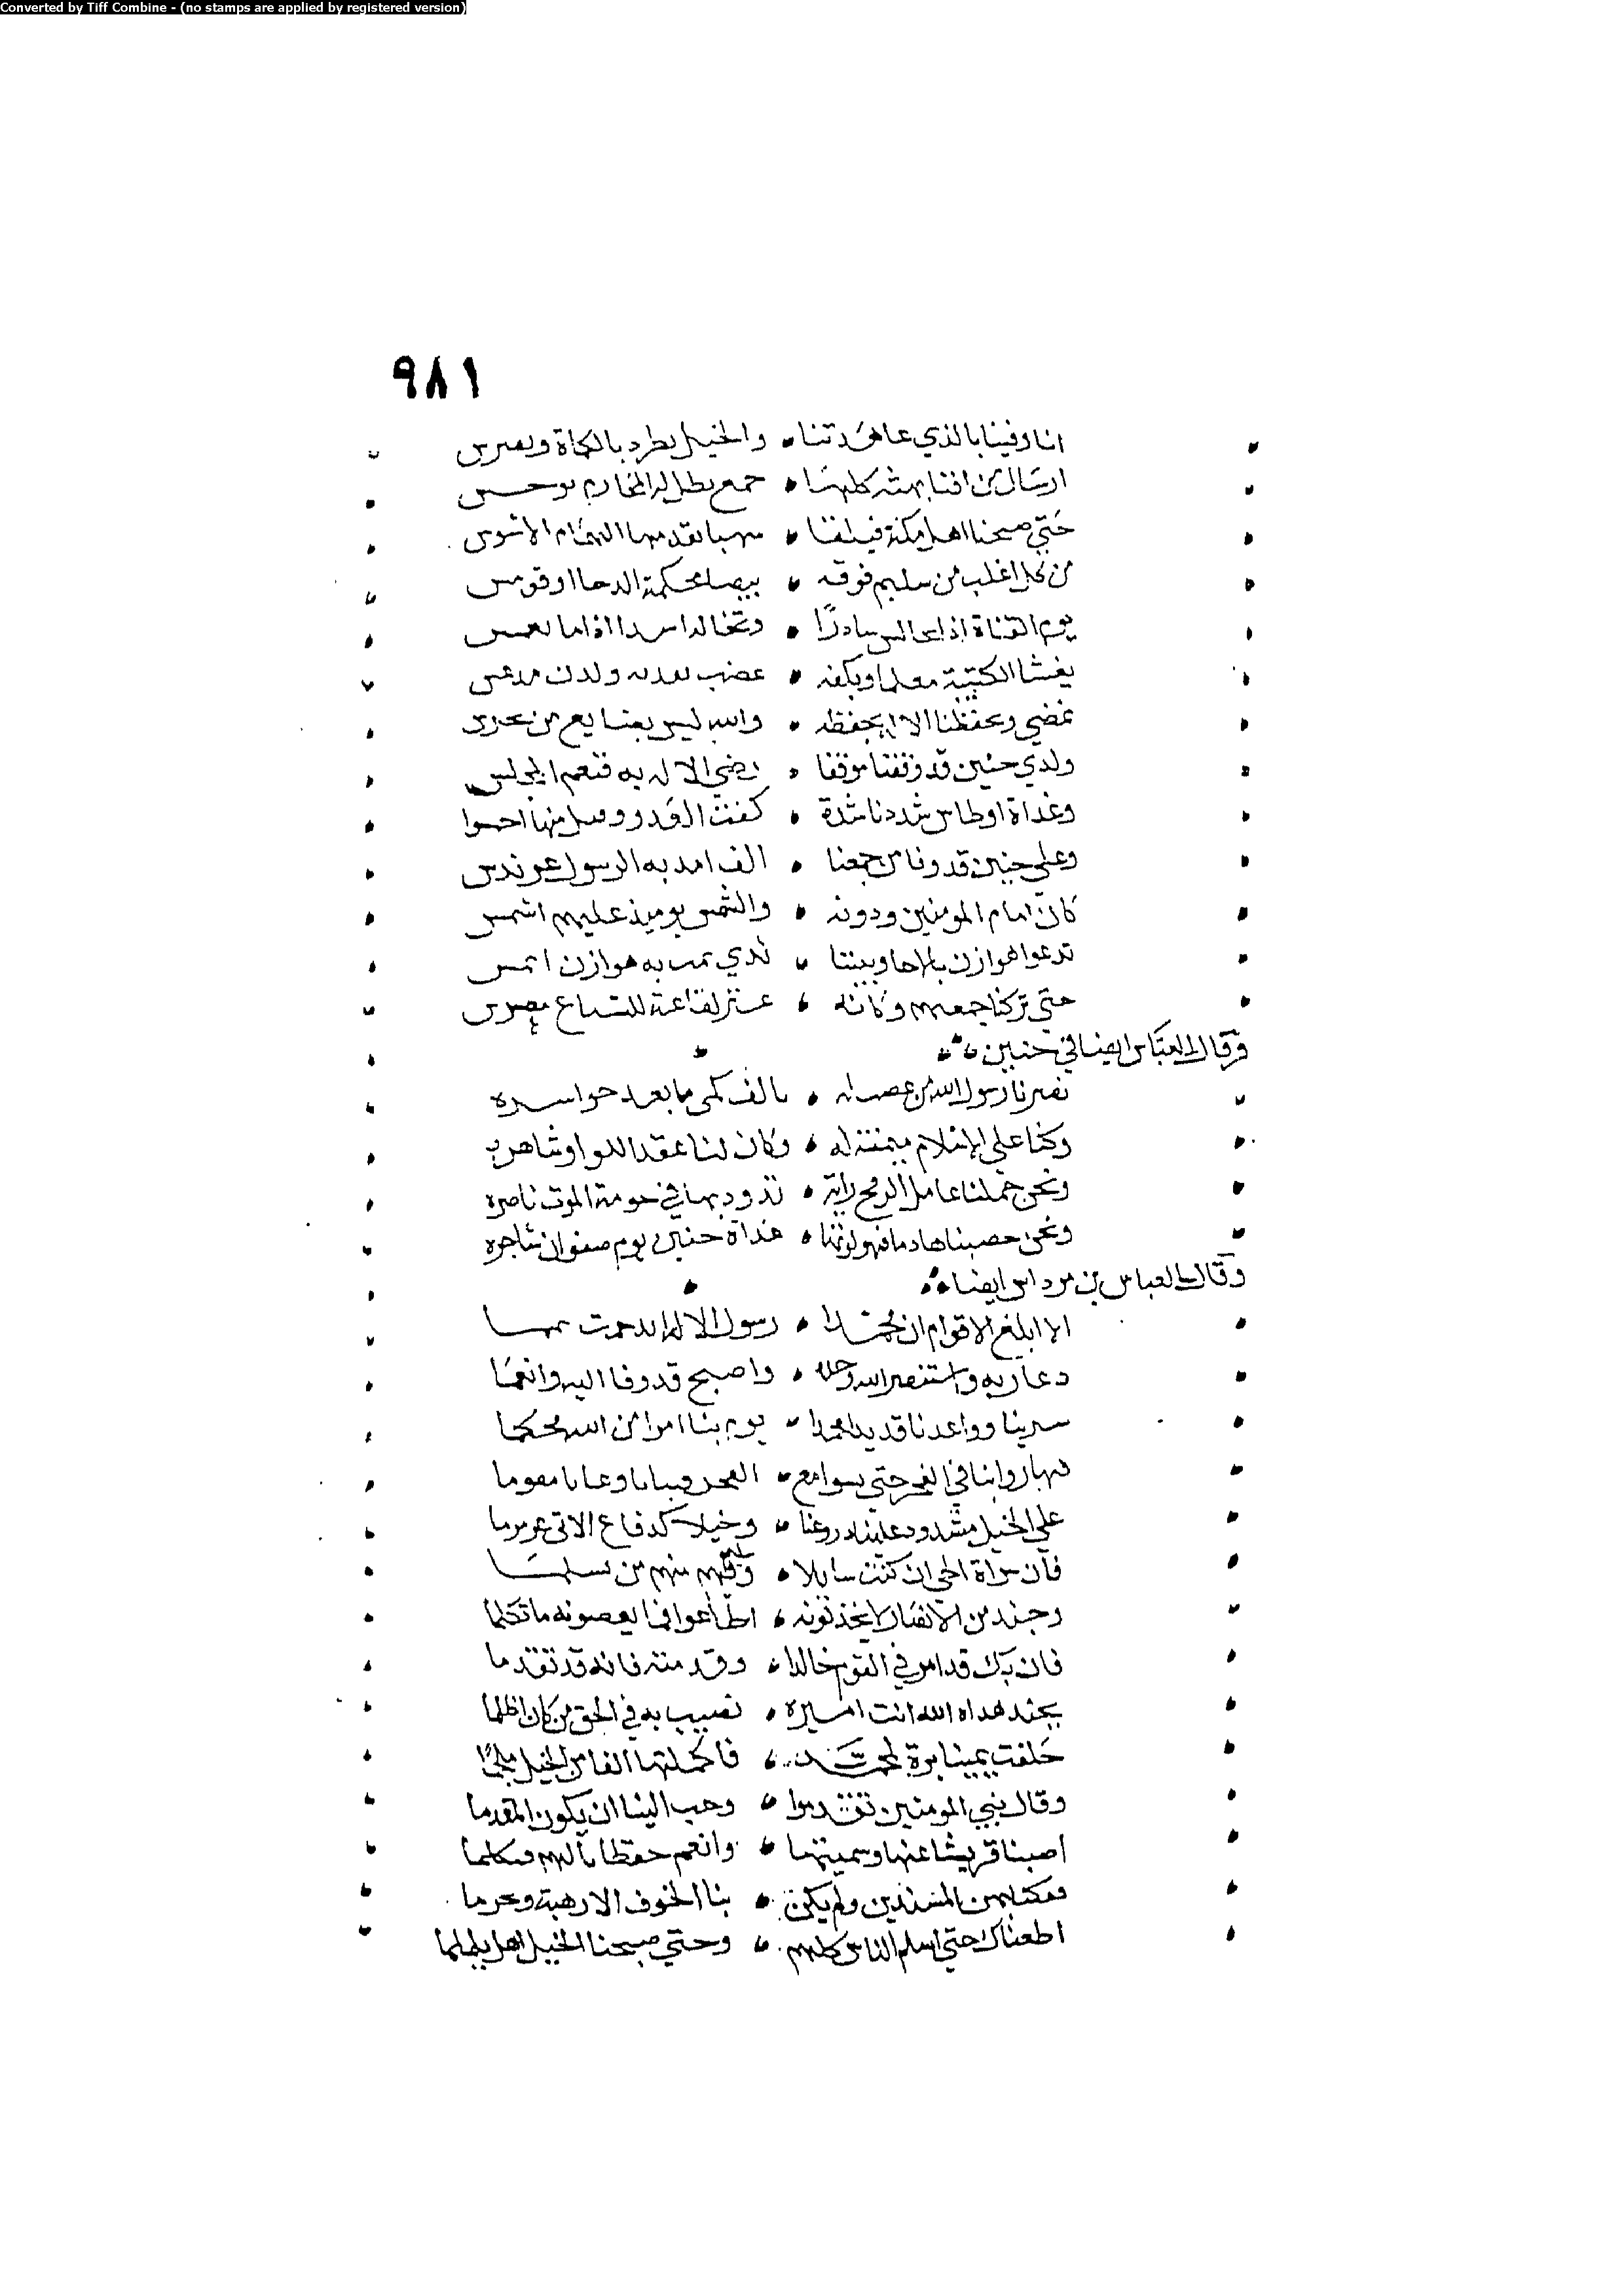 Converted by Tiff Combine - (no stamps are applied by registered version)
٩٨١
انا وفينا بالذي عاهدتنا والخيل تطرد بالكماة وتضرس
ارسال من افنا بهثة كلها جمع يظل به المخارم توجس
حتي صبحنا اهل مكة فيلقا شهبا يقدمها الهمام الاشوس
من كل اغلب من سليم فوقه بيضا محكمة الدخال وقونس
وتخاله اسدا اذا ما يعبس
يغشا الكتيبة معلما وبكفه عضب يقد به ولدن مدعس
نمضي ويحفظنا الاله بحفظه والله ليس بضايع من يحرس
ولدي حنين قد وقفنا موقفا رضي الاله به فنعم المجلس
وغداة اوطاس شددنا شدة كفت العدو وقيل منها احبسوا
وعلي حنين قد وفا من جمعنا الف امد به الرسول عرندس
كان امام المومنين ودونه والشمس يوميذ عليهم اشمس
تدعوا هوازن بالاخاوة بيننا ثدي تمت به هوازن ايبس
حتي تركنا جمعهم وكانه عير تعاقبه السباع مفرس
وقال العباس ايضا في حنين
نصرنا رسول الله من غضب له بالف كمي ما تعد حواسره
وكنا علي الاسلام ميمنة له وكان لنا عقد اللوا وشاهره
ونحن حملنا عامل الرمح راية تذود بها في حومة الموت ناصره
ونحن خضبناها دما فهو لونها غداة حنين يوم صفوان شاجره
وقال العباس بن مرداس ايضا
الا ابلغ الاقوام ان محمدا رسول الاله راشد حيث يمما
دعا ربه واستنصر الله وحده واصبح قد وفا اليه وانعما
سرينا وواعدنا قديدا محمدا يوم بنا امرا من الله محكما
تماروا بنا في الفجر حتي
علي الخيل مشدودا علينا دروعنا وخيلا كدفاع الاتي عرمرما
فان سراة الحي ان كنت سايلا سليم وفيهم منهم من تسلما
وجند من الانصار لا يخذلونه اطاعوا فما يعصونه ما تكلما
فان يك قد امر في القوم خالدا وقدمته فانه قد تقدما
بجند هداه الله انت اميره نصيب به في الحق من كان اظلما
حلفت يمينا برة لمحمد فاكملتها الفا من الخيل ملجما
وقال نبي المومنين تقدموا وحب الينا ان يكون المقدما
بنا الخوف الا رهبة وتحزما
اطعناك حتي اسلم الناس كلهم وحتي صبحنا الخيل اهل يلملما